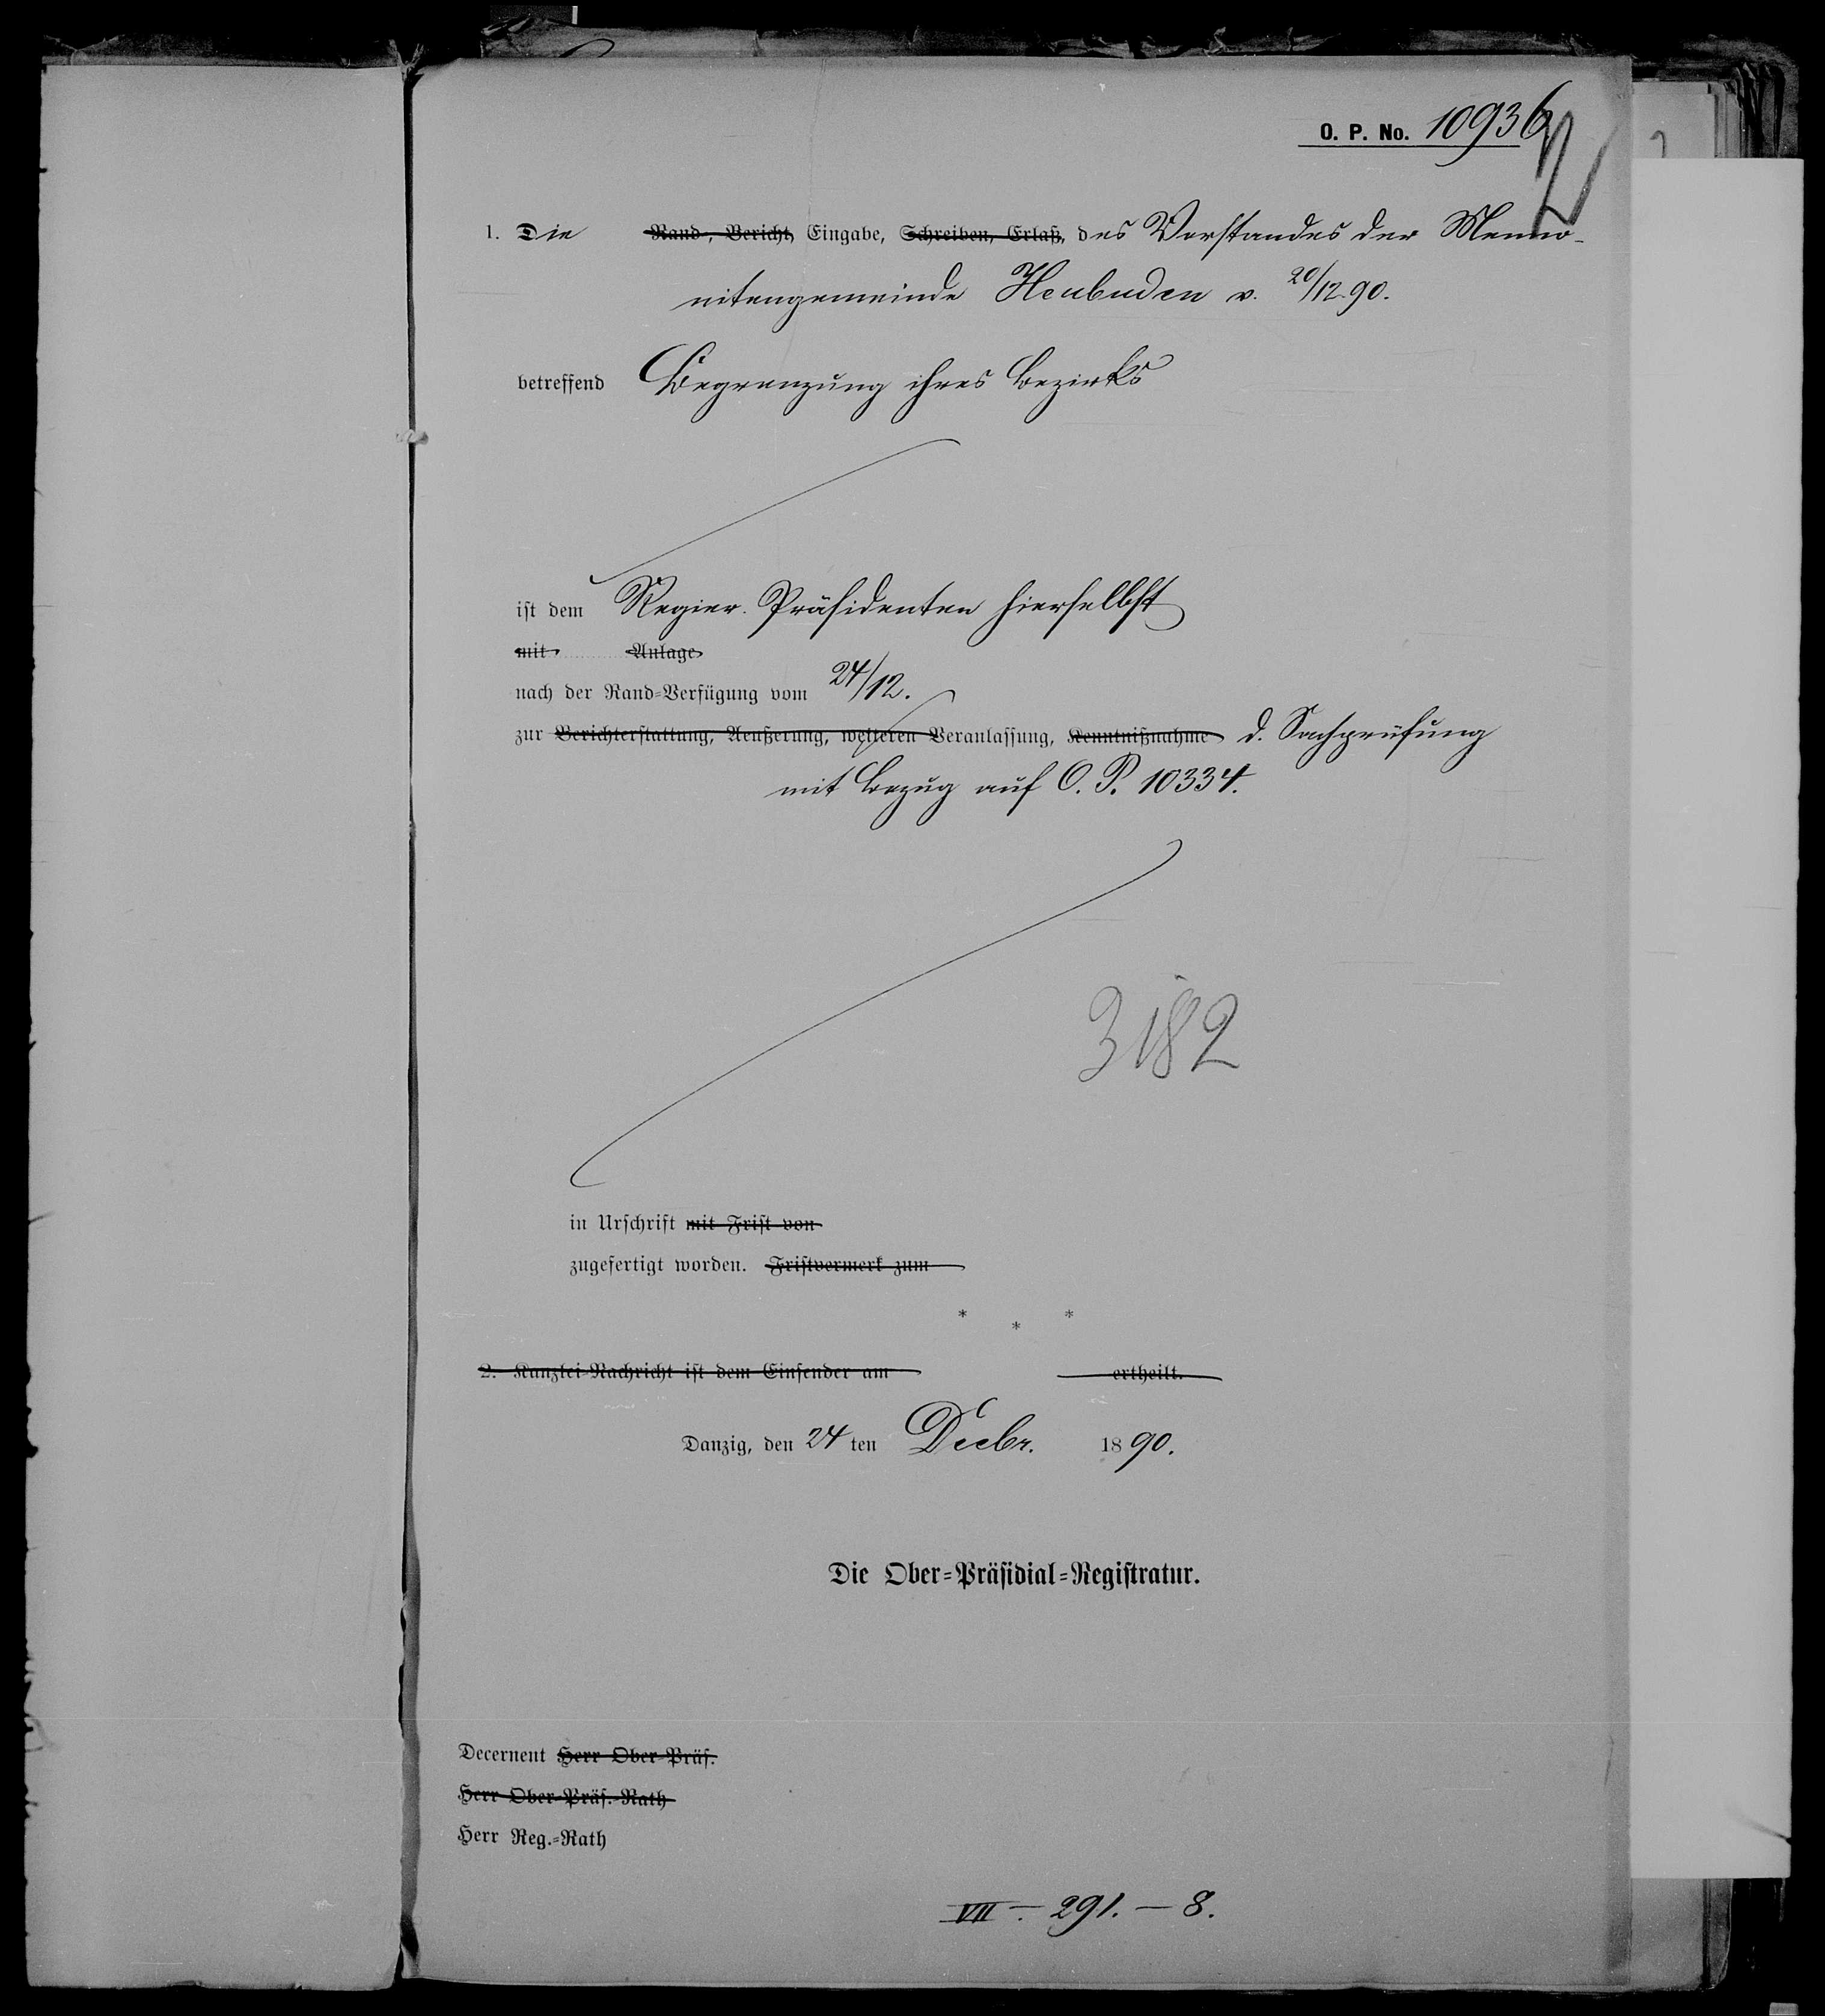 O. P. No. 10936
1. Die Rand-, Bericht, Eingabe, Schreiben, Erlaß, des Vorstandes der Menno-
nitengemeinde Heubuden v. 20/12 90.
betreffend Begrenzung ihres Bezirks
ist dem Regier. Präsidenten hierselbst
mit Anlage
nach der Rand-Verfügung vom 24/12.
zur Berichterstattung, Aeußerung, weiteren Veranlassung, Kenntnißnahme d. Sachprüfung
mit Bezug auf O. P. 10334.
3182
in Urschrift mit Frist von
zugefertigt worden. Fristvermerk zum
* * *
2. Kanzlei-Nachricht ist dem Einsender am ertheilt.
Danzig, den 24 ten Decbr. 1890.
Die Ober-Präsidial-Registratur.
Decernent Herr Ober-Präs.
Herr Ober-Präs.-Rath
Herr Reg.-Rath
VII. – 291. – 8.